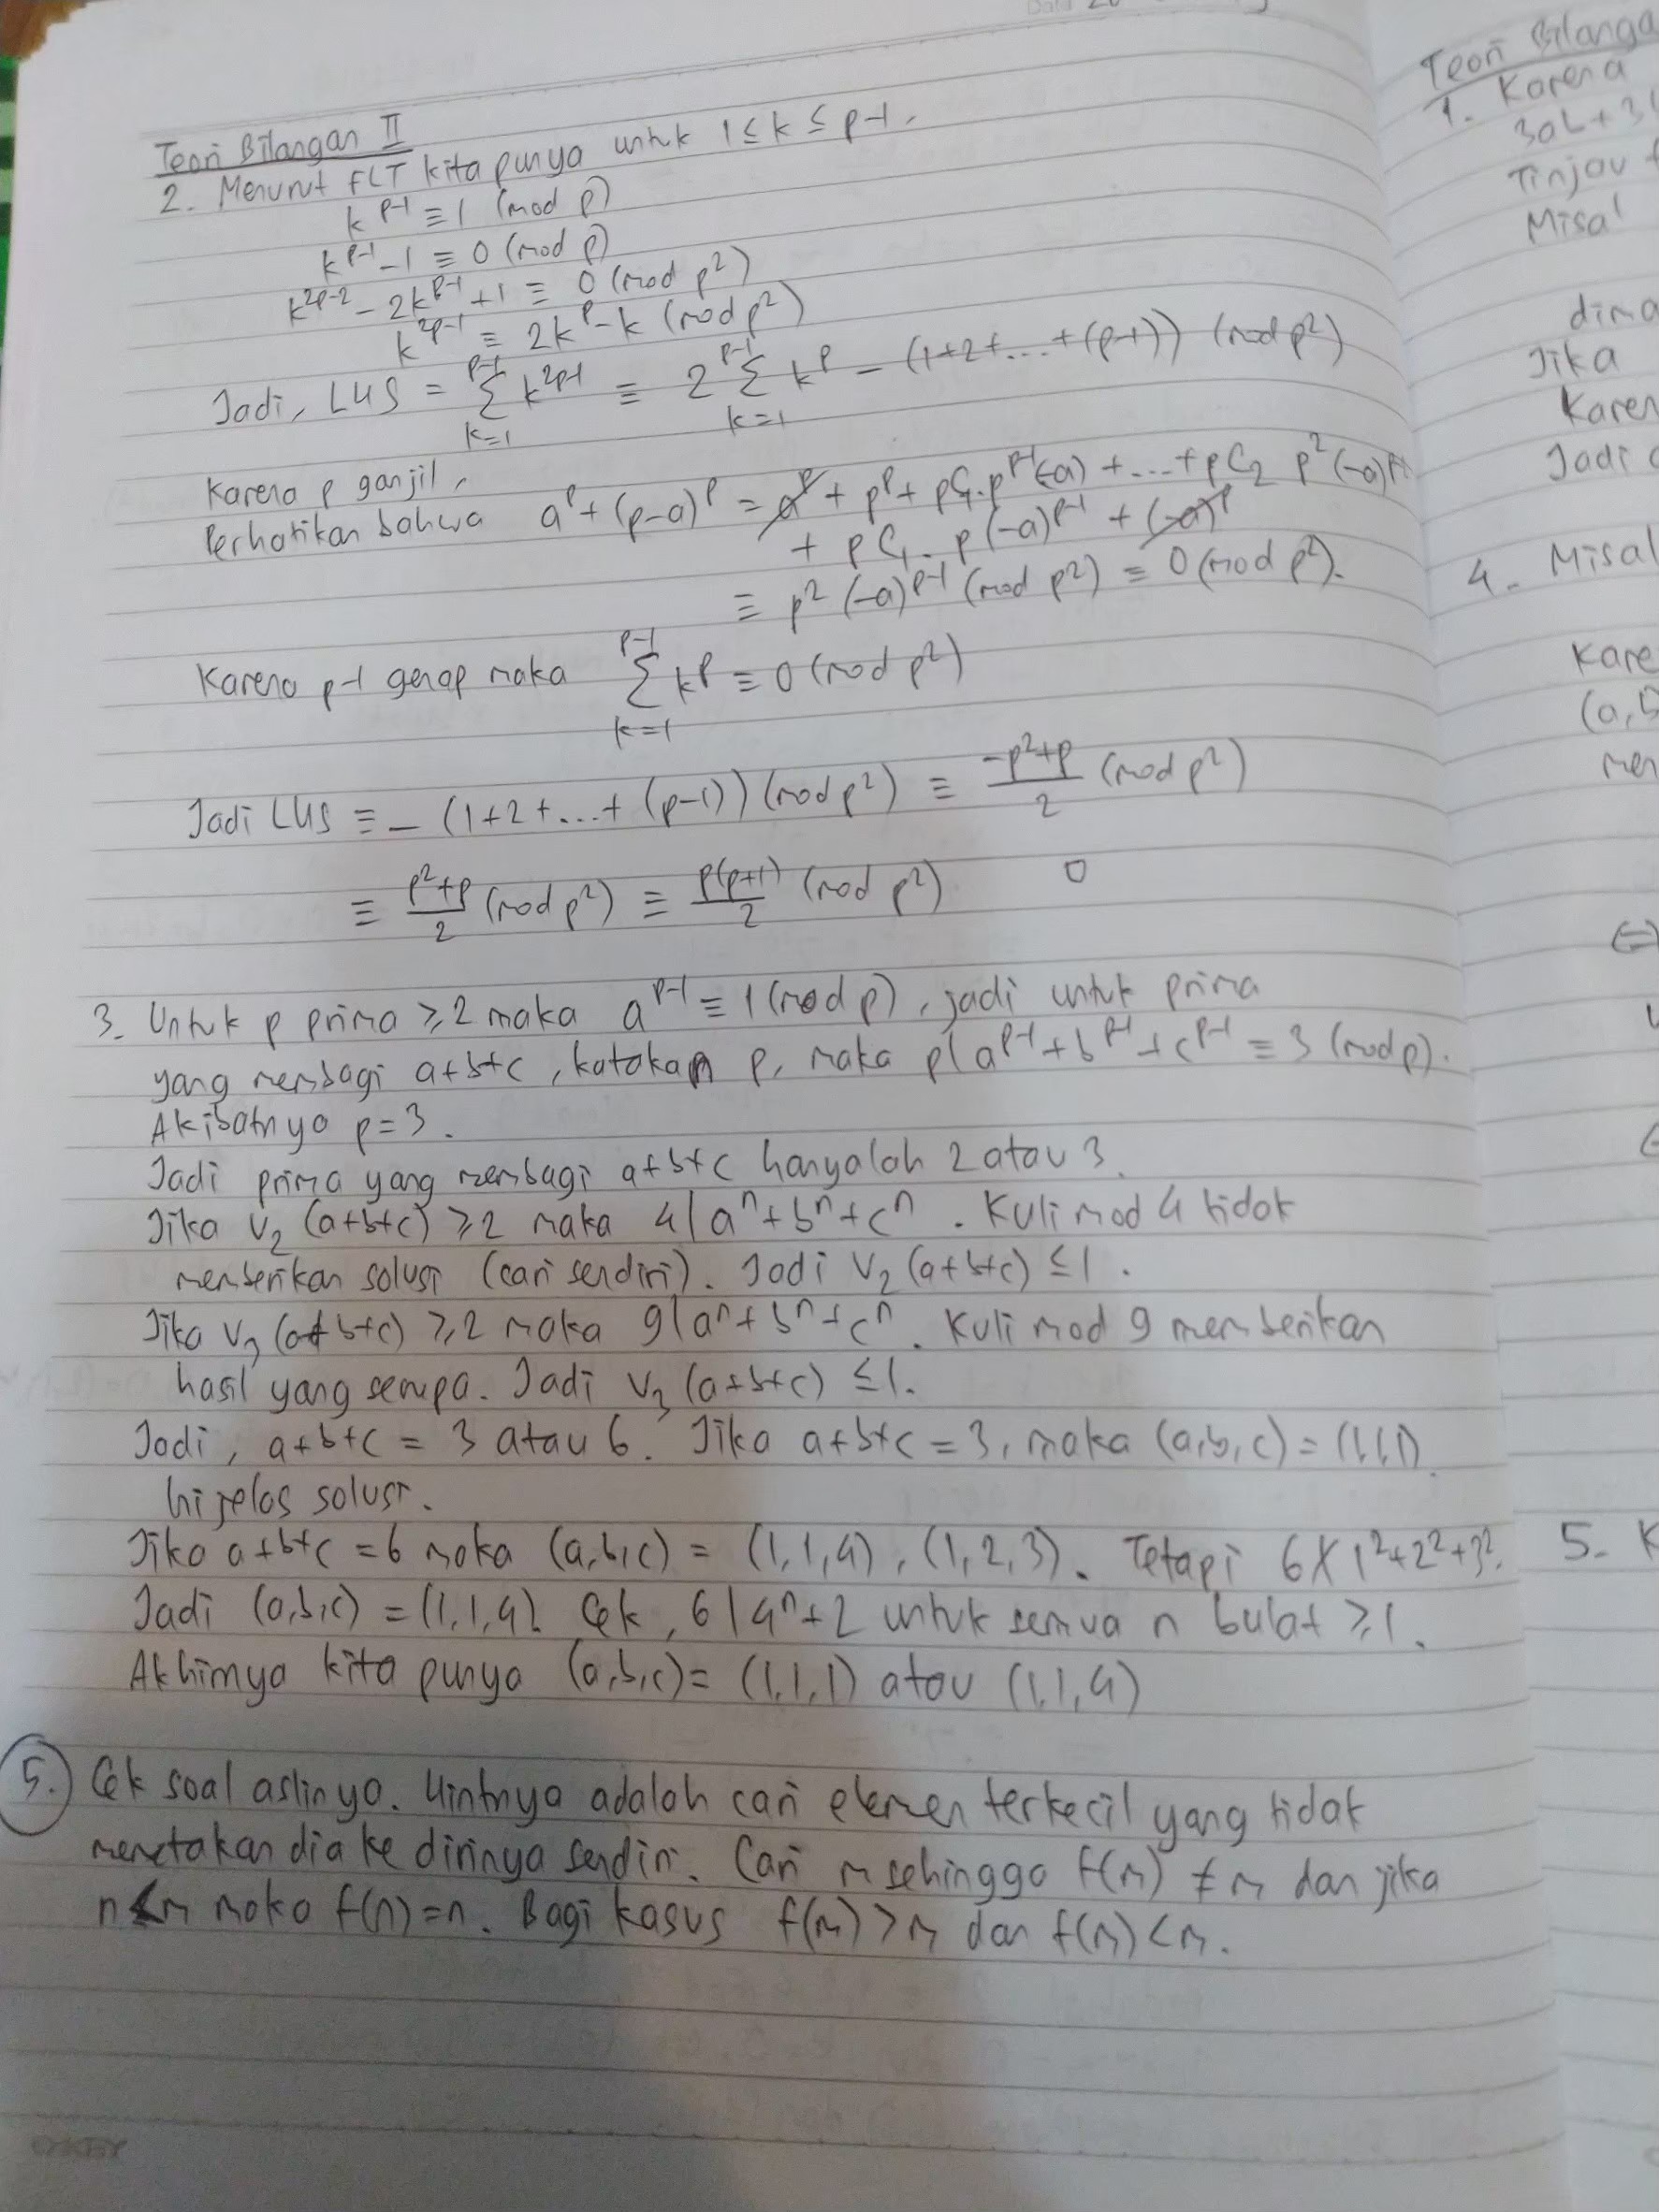 Teori Bilangan II
2. Menurut FLT kita punya untuk 1 ≤ k ≤ p-1,
k^{p-1} ≡ 1 (mod p)
k^{p-1} - 1 ≡ 0 (mod p)
k^{2p-2} - 2k^{p-1} + 1 ≡ 0 (mod p²)
k^{2p-1} ≡ 2k^p - k (mod p²)
Jadi, LHS = \sum_{k=1}^{p-1} k^{2p-1} ≡ 2 \sum_{k=1}^{p-1} k^p - (1+2+...+(p-1)) (mod p²)
Karena p ganjil,
Perhatikan bahwa a^p + (p-a)^p = a^p + p^p + pC_1. p^{p-1}(-a) + ... + pC_2 p²(-a)
+ pC_1. p(-a)^{p-1} + (-a)^p
≡ p² (-a)^{p-1} (mod p²) ≡ 0 (mod p²).
Karena p-1 genap maka \sum_{k=1}^{p-1} k^p ≡ 0 (mod p²)
Jadi LHS ≡ - (1+2+...+(p-1)) (mod p²) ≡ \frac{-p²+p}{2} (mod p²)
≡ \frac{p²+p}{2} (mod p²) ≡ \frac{p(p+1)}{2} (mod p²) □
3. Untuk p prima ≥ 2 maka a^{p-1} ≡ 1 (mod p), jadi untuk prima
yang membagi a+b+c, katakan p, maka p | a^{p-1} + b^{p-1} + c^{p-1} ≡ 3 (mod p).
Akibatnya p = 3.
Jadi prima yang membagi a+b+c hanyalah 2 atau 3.
Jika v_2 (a+b+c) ≥ 2 maka 4 | a^n + b^n + c^n. Kuli mod 4 tidak
memberikan solusi (cari sendiri). Jadi v_2 (a+b+c) ≤ 1.
Jika v_3 (a+b+c) ≥ 2 maka 9 | a^n + b^n + c^n. Kuli mod 9 memberikan
hasil yang serupa. Jadi v_3 (a+b+c) ≤ 1.
Jadi, a+b+c = 3 atau 6. Jika a+b+c = 3, maka (a,b,c) = (1,1,1)
ini jelas solusi.
Jika a+b+c = 6 maka (a,b,c) = (1,1,4), (1,2,3). Tetapi 6 ∤ 1²+2²+3².
Jadi (a,b,c) = (1,1,4). Cek, 6 | 4^n + 2 untuk semua n bulat ≥ 1.
Akhirnya kita punya (a,b,c) = (1,1,1) atau (1,1,4)
5. Cek soal aslinya. Hintnya adalah cari elemen terkecil yang tidak
memetakan dia ke dirinya sendiri. Cari m sehingga f(m) ≠ m dan jika
n < m maka f(n) = n. Bagi kasus f(m) > m dan f(m) < m.
Teori Bilanga
1. Karena
3ab + 3
Tinjau
Misal
dima
Jika
Karen
Jadi
4. Misal
Kare
(a,b
men
5. K